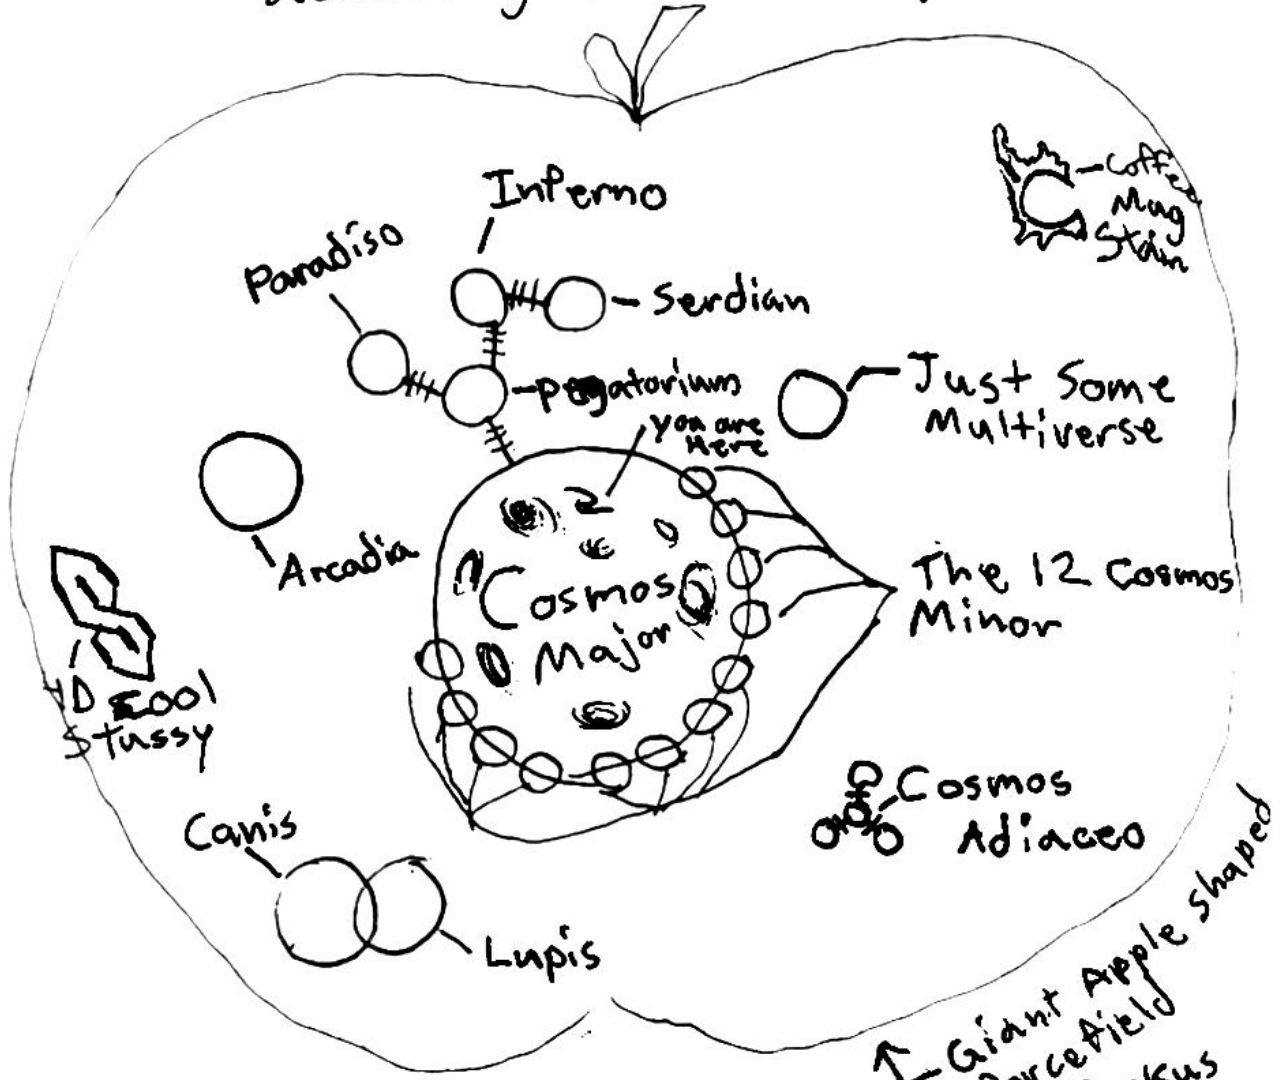 Inferno
Paradiso
Serdian
Just Some
Multiverse
you are
Here
Coffee
Mug
Stain
Arcadia
Cosmos
Major
The 12 Cosmos
Minor
4D Cool
Stussy
Canis
Lupis
Cosmos
Adiaceo
Giant Apple shaped
Forcefield